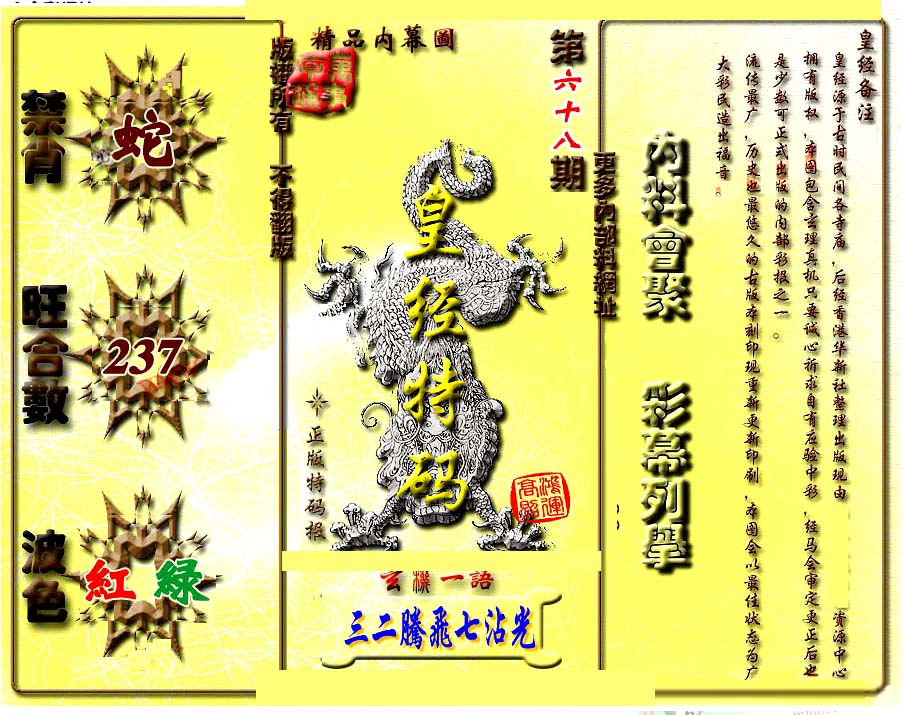 皇经备注
皇经源于古时民间各寺庙，后经香港华新社整理出版现由
资源中心
拥有版权，本图包含玄理真机只要诚心祈求自有应验中彩，经马会审定更正后也
是少数可正式出版的内部彩报之一。
流传最广，历史也最悠久的古版本刻印现重新更新印刷，本图会以最佳状态为广
大彩民造出福音
内料會聚
彩幕列舉
更多內部料網址
第六十八期
精品内幕圖
皇经特码
正版特码报
鴻運高照
版權所有 不得翻版
玄機一語
三二騰飛七沾光
禁肖
蛇
旺合數
237
波色
紅 緑